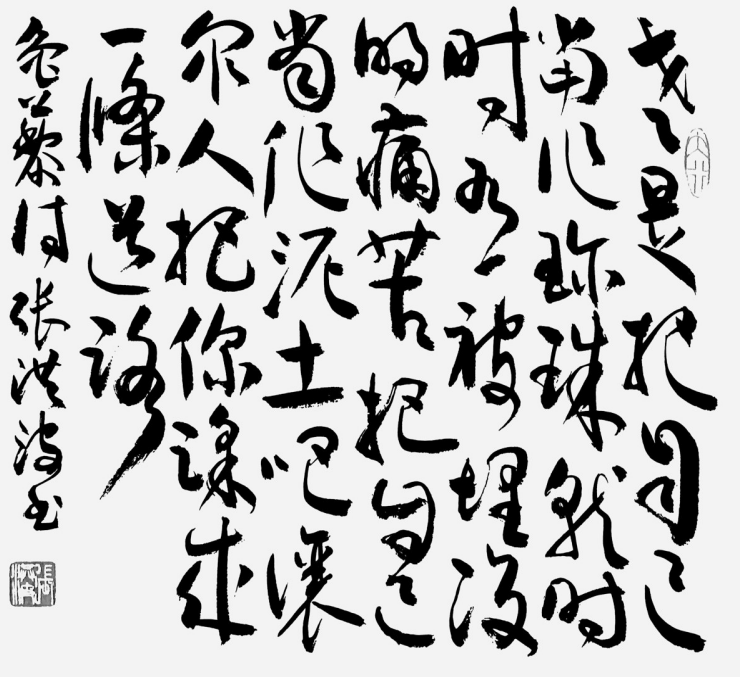 老是把自己
當作珍珠就时
时有被埋没
的痛苦把自己
當作泥土吧让
众人把你踩成
一條道路
鲁藜诗张洪波书